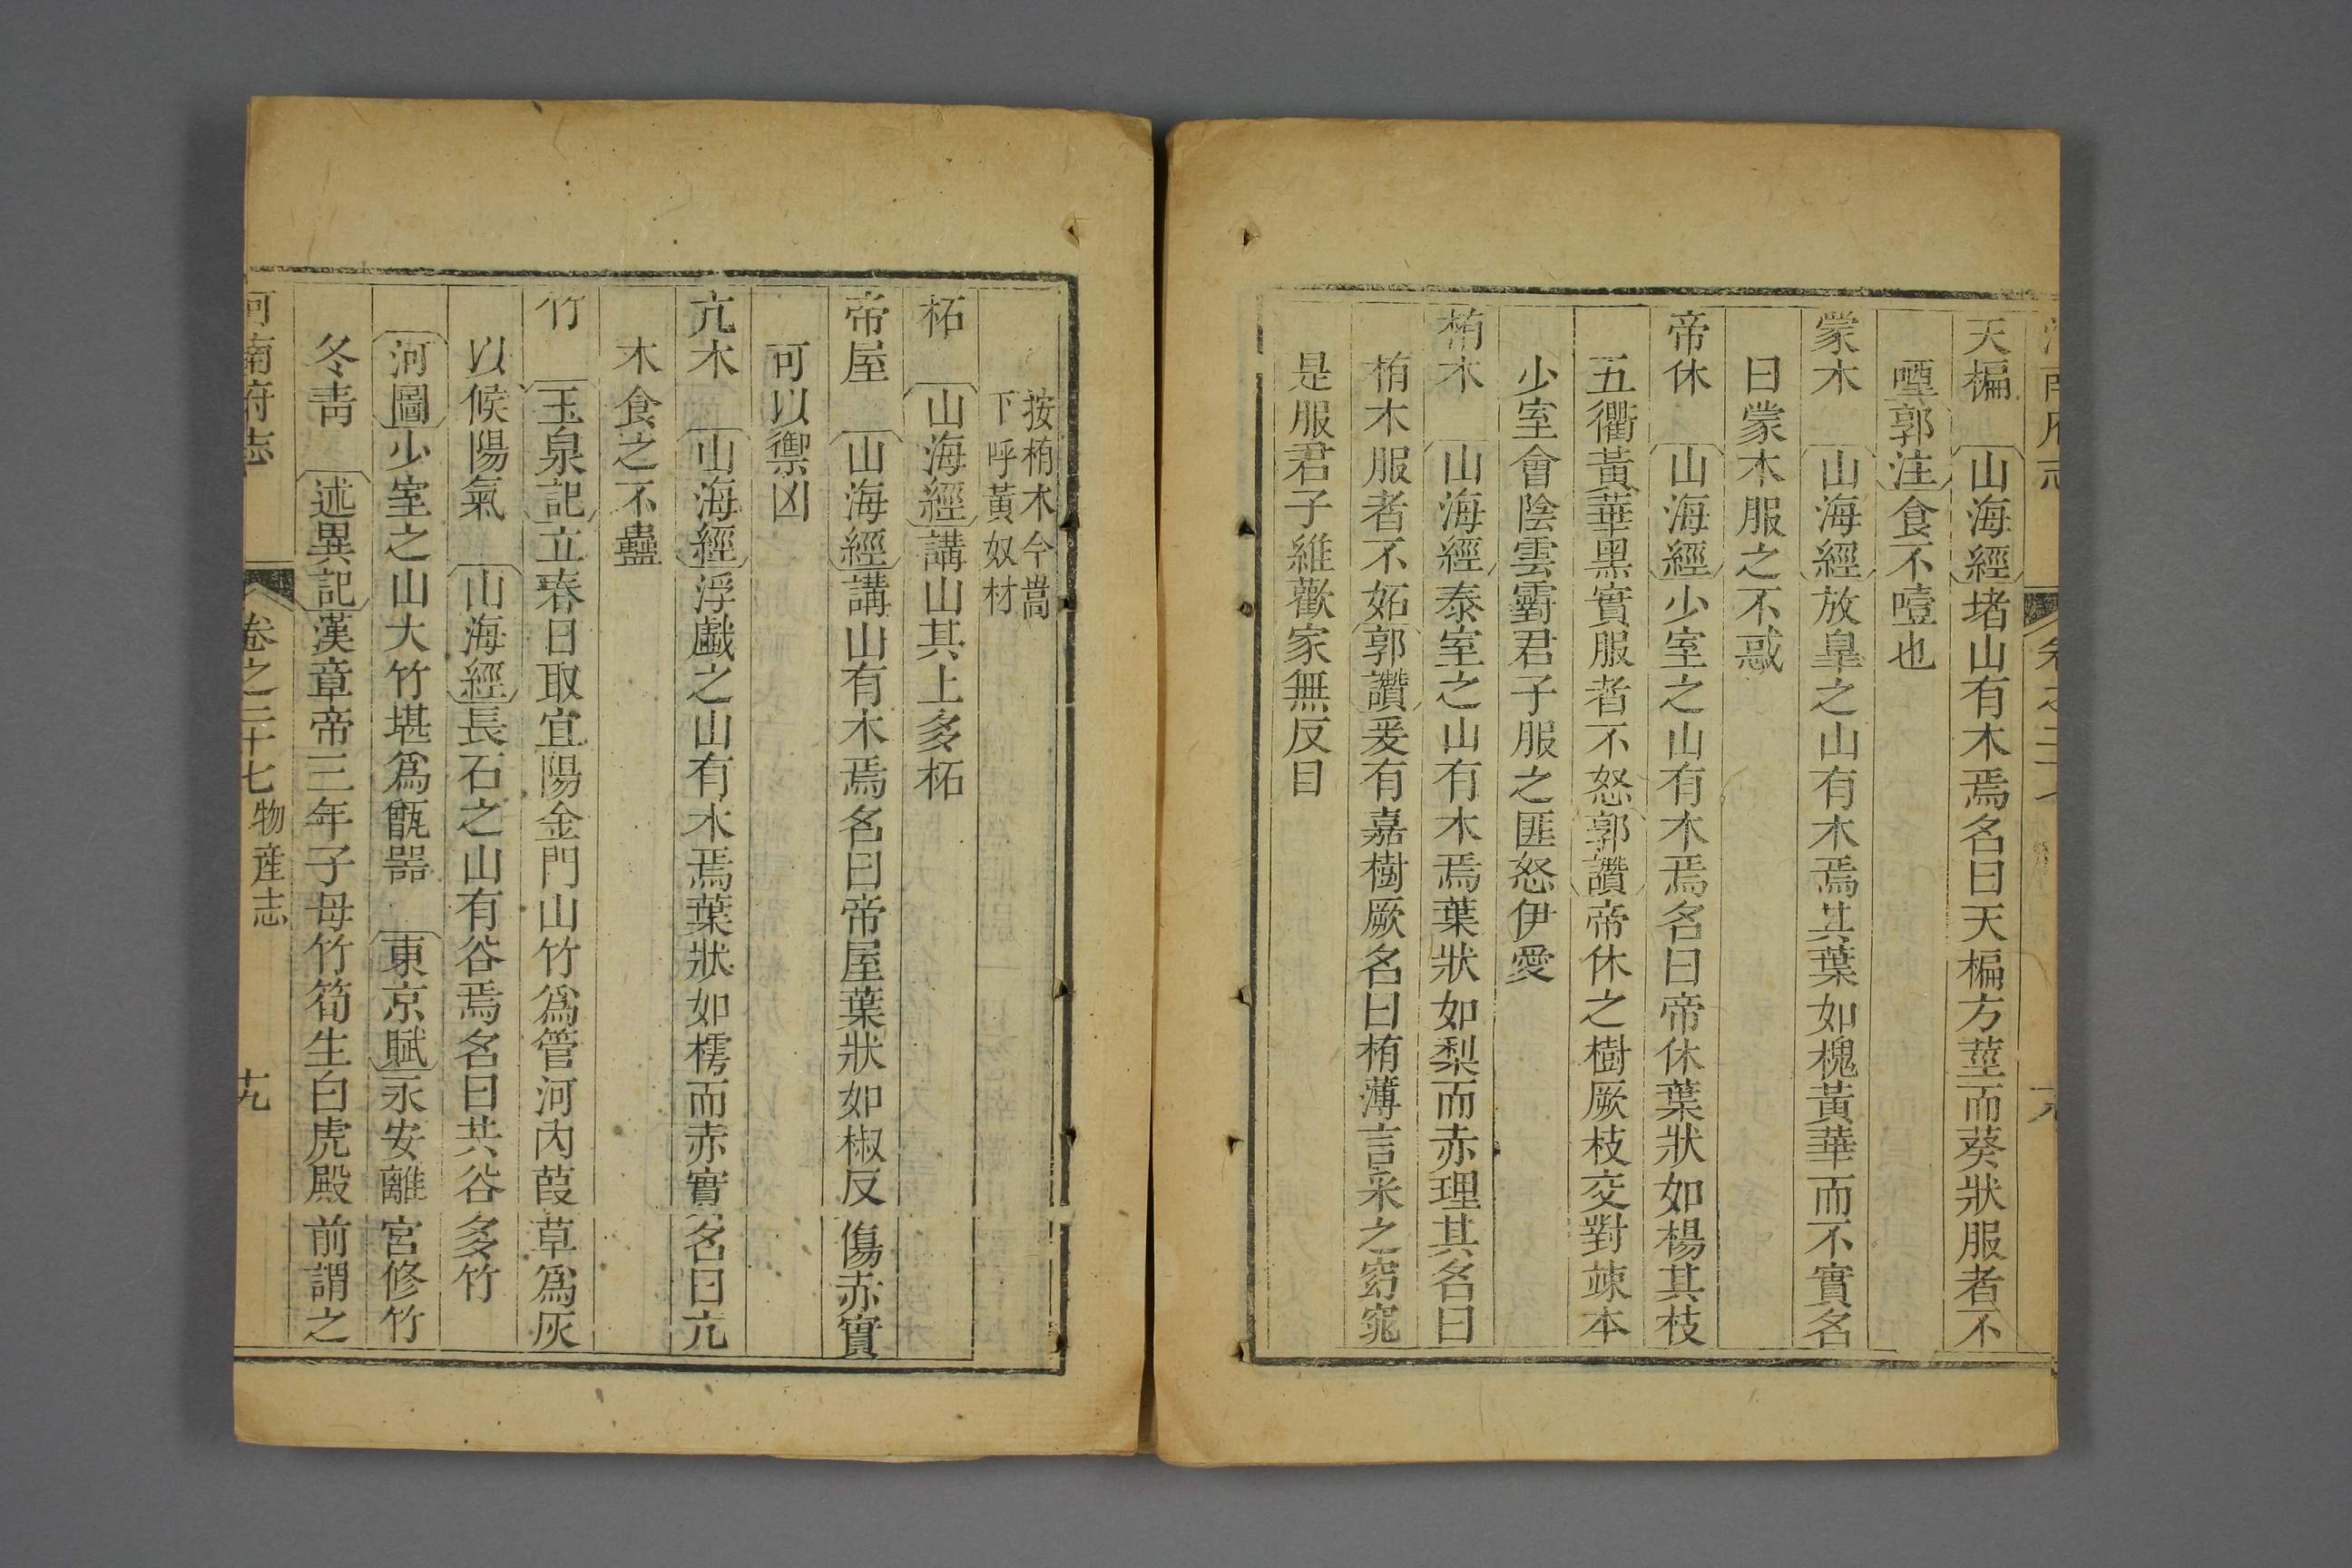 天楄　山海經堵山有木焉名曰天楄方莖而葵狀服者不
㖶郭注食不噎也
蒙木　山海經放臯之山有木焉其葉如槐黃華而不實名
曰蒙木服之不惑
帝休　山海經少室之山有木焉名曰帝休葉狀如楊其枝
五衢黃華黑實服者不怒郭讚帝休之樹厥枝交對竦本
少室會陰雲霨君子服之匪怒伊愛
栯木　山海經泰室之山有木焉葉狀如梨而赤理其名曰
栯木服者不妬郭讚爰有嘉樹厥名曰栯薄言采之窈窕
是服君子維歡家無反目
按栯木今嵩
下呼黃奴材
柘　山海經講山其上多柘
帝屋　山海經講山有木焉名曰帝屋葉狀如椒反傷赤實
可以禦凶
亢木　山海經浮戲之山有木焉葉狀如樗而赤實名曰亢
木食之不蠱
竹　玉泉記立春日取宜陽金門山竹爲管河內葭草爲灰
以候陽氣　山海經長石之山有谷焉名曰共谷多竹
河圖少室之山大竹堪爲甑器　東京賦永安離宮修竹
冬青　述異記漢章帝三年子母竹筍生白虎殿前謂之
河南府志　卷之二十七物産志　十九